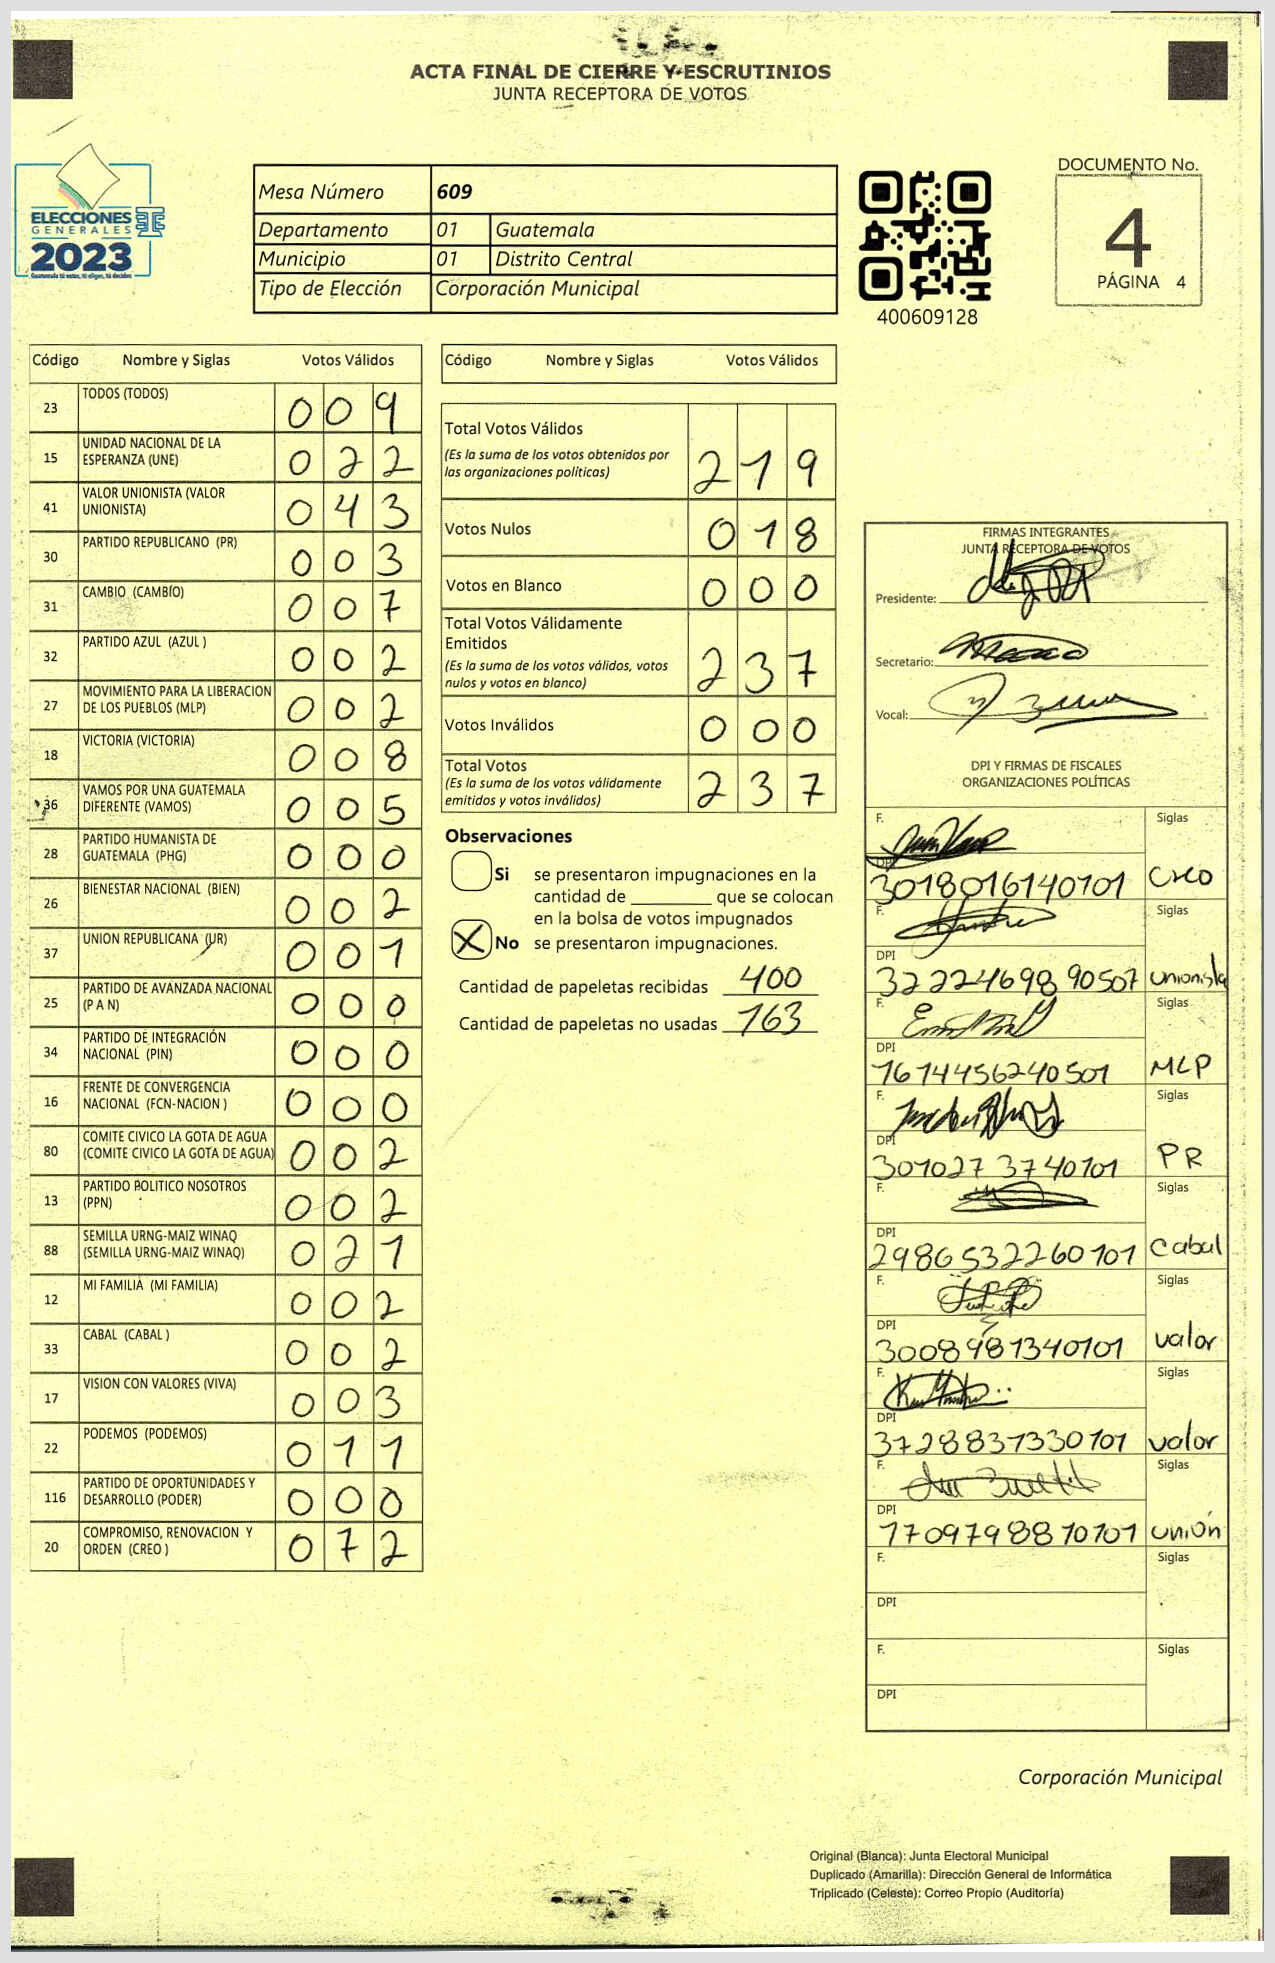 ACTA FINAL DE CIERRE Y ESCRUTINIOS
JUNTA RECEPTORA DE VOTOS
ELECCIONES
GENERALES
2023
Mesa Número 609
Departamento 01 Guatemala
Municipio 01 Distrito Central
Tipo de Elección Corporación Municipal
400609128
DOCUMENTO No.
4
PÁGINA 4
Código Nombre y Siglas Votos Válidos
23 TODOS (TODOS) 0 0 9
15 UNIDAD NACIONAL DE LA
ESPERANZA (UNE) 0 2 2
41 VALOR UNIONISTA (VALOR
UNIONISTA) 0 4 3
30 PARTIDO REPUBLICANO (PR) 0 0 3
31 CAMBIO (CAMBÍO) 0 0 7
32 PARTIDO AZUL (AZUL ) 0 0 2
27 MOVIMIENTO PARA LA LIBERACION
DE LOS PUEBLOS (MLP) 0 0 2
18 VICTORIA (VICTORIA) 0 0 8
36 VAMOS POR UNA GUATEMALA
DIFERENTE (VAMOS) 0 0 5
28 PARTIDO HUMANISTA DE
GUATEMALA (PHG) 0 0 0
26 BIENESTAR NACIONAL (BIEN) 0 0 2
37 UNION REPUBLICANA (UR) 0 0 1
25 PARTIDO DE AVANZADA NACIONAL
(P A N) 0 0 0
34 PARTIDO DE INTEGRACIÓN
NACIONAL (PIN) 0 0 0
16 FRENTE DE CONVERGENCIA
NACIONAL (FCN-NACION ) 0 0 0
80 COMITE CIVICO LA GOTA DE AGUA
(COMITE CIVICO LA GOTA DE AGUA) 0 0 2
13 PARTIDO POLITICO NOSOTROS
(PPN) 0 0 2
88 SEMILLA URNG-MAIZ WINAQ
(SEMILLA URNG-MAIZ WINAQ) 0 2 1
12 MI FAMILIA (MI FAMILIA) 0 0 2
33 CABAL (CABAL ) 0 0 2
17 VISION CON VALORES (VIVA) 0 0 3
22 PODEMOS (PODEMOS) 0 1 1
116 PARTIDO DE OPORTUNIDADES Y
DESARROLLO (PODER) 0 0 0
20 COMPROMISO, RENOVACION Y
ORDEN (CREO ) 0 7 2
Código Nombre y Siglas Votos Válidos
Total Votos Válidos
(Es la suma de los votos obtenidos por
las organizaciones políticas) 2 1 9
Votos Nulos 0 1 8
Votos en Blanco 0 0 0
Total Votos Válidamente
Emitidos
(Es la suma de los votos válidos, votos
nulos y votos en blanco) 2 3 7
Votos Inválidos 0 0 0
Total Votos
(Es la suma de los votos válidamente
emitidos y votos inválidos) 2 3 7
Observaciones
Si se presentaron impugnaciones en la
cantidad de _________ que se colocan
en la bolsa de votos impugnados
X No se presentaron impugnaciones.
Cantidad de papeletas recibidas 400
Cantidad de papeletas no usadas 163
FIRMAS INTEGRANTES
JUNTA RECEPTORA DE VOTOS
Presidente:
Secretario:
Vocal:
DPI Y FIRMAS DE FISCALES
ORGANIZACIONES POLÍTICAS
F. Siglas
DPI
3018016140101 Creo
F. Siglas
DPI
3222469890507 unionista
F. Siglas
DPI
1614456240501 MLP
F. Siglas
DPI
3010273740101 PR
F. Siglas
DPI
2986532260101 Cabal
F. Siglas
DPI
3008981340101 valor
F. Siglas
DPI
3728837330101 valor
F. Siglas
DPI
1709798810101 unión
F. Siglas
DPI
F. Siglas
DPI
Corporación Municipal
Original (Blanca): Junta Electoral Municipal
Duplicado (Amarilla): Dirección General de Informática
Triplicado (Celeste): Correo Propio (Auditoría)